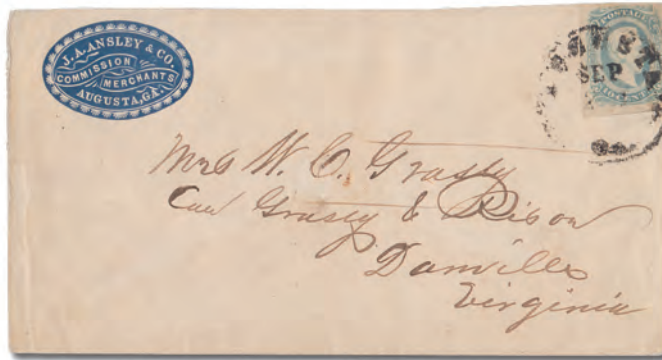 J. A. ANSLEY & CO.
COMMISSION
MERCHANTS
AUGUSTA, GA.
POSTAGE
SEP
Mrs W. C. Grasty
Care Grasty & Rison
Danville
Virginia